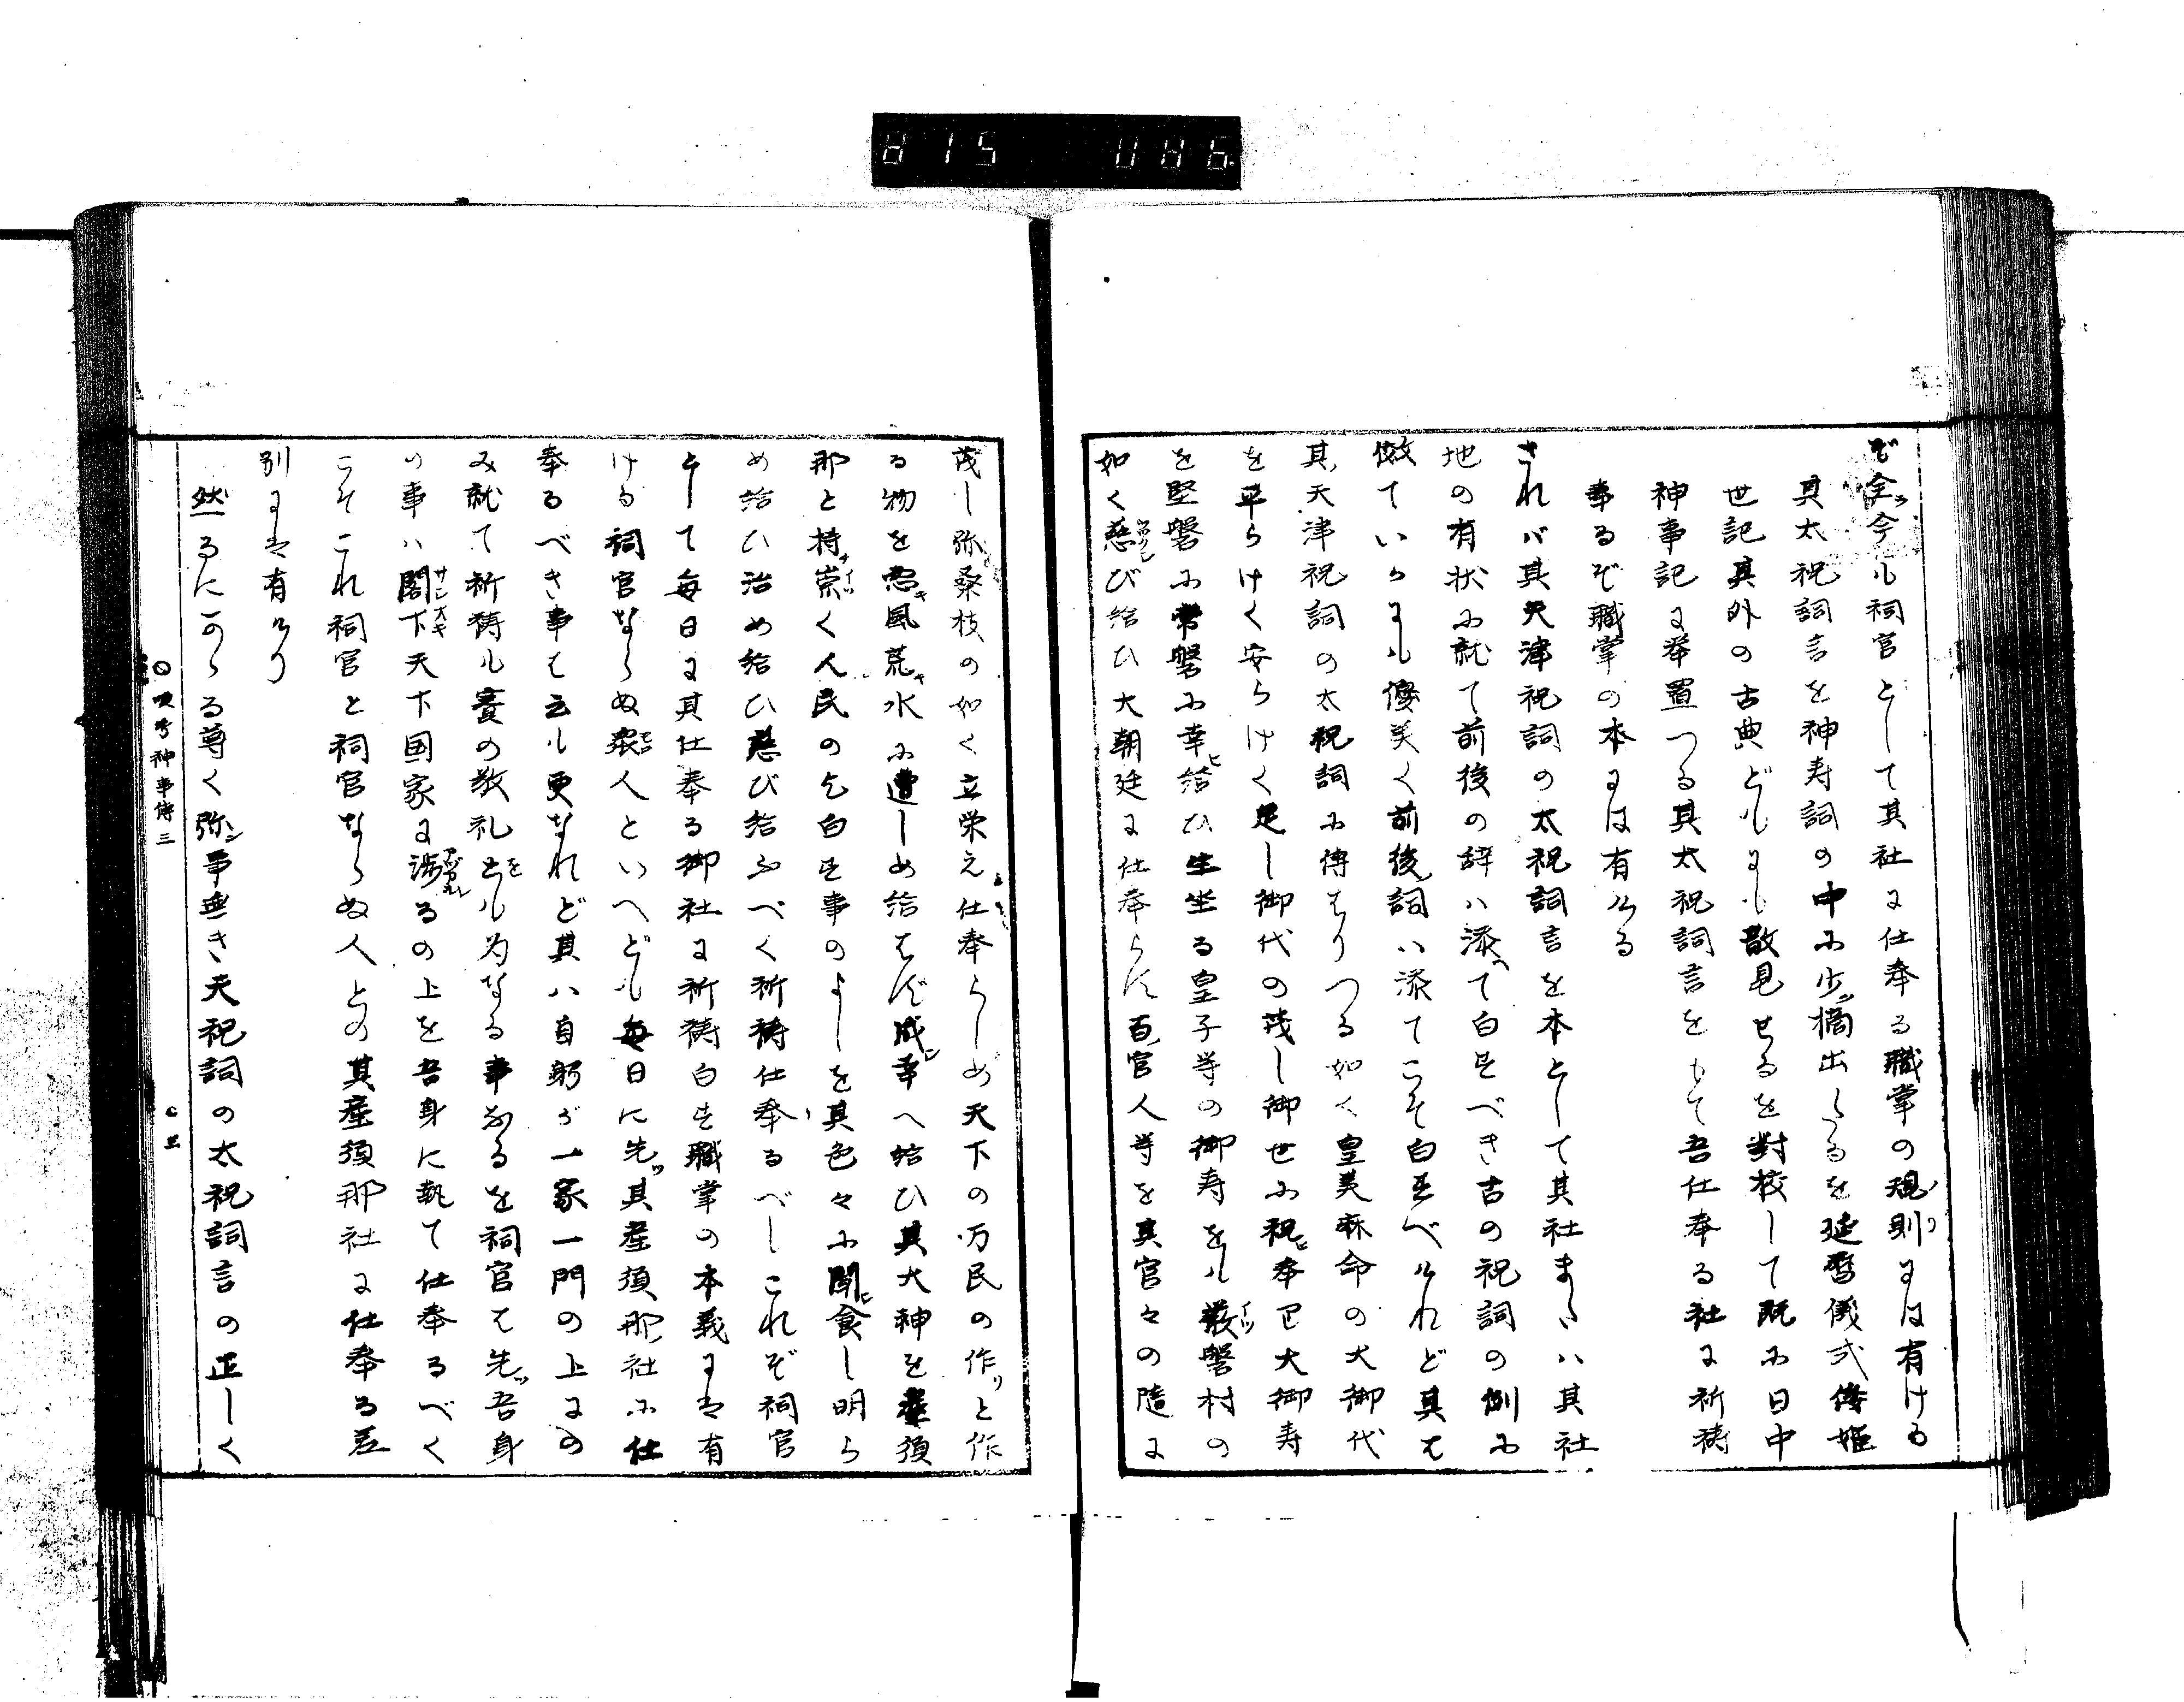 815 086
ぞ全ク今も祠官として其社に仕奉る職掌の規則には有ける
其太祝詞言を神寿詞の中に少シ摘出たるを延暦儀式倭姫
世記其外の古典どもにも散見せるを対校して既に日中
神事記に挙置つる其太祝詞言をもて吾仕奉る社に祈祷
奉るぞ職掌の本には有ける
されバ其天津祝詞の太祝詞言を本として其社また八其社
地の有状に就て前後の辞ハ添へて白すべき古の祝詞の例に
傚ていかにも優美く前後詞ハ添てこそ白すべけれど其は
其天津祝詞の太祝詞に伝はりつる如く皇美麻命の大御代
を平らけく安らけく足し御代の茂し御世に祝ヒ奉り大御寿
を堅磐に常磐に幸ヒ給ひ生坐る皇子等の御寿をも厳磐村の
如く慈び給ひ大朝廷に仕奉らん百官人等を其官々の随に
茂し弥桑枝の如く立栄え仕奉らしめ天下の万民の作リと作
る物を悪キ風荒キ水に遭しめ給はず成シ幸へ給ひ其大神を産須
那と持チ崇イツく人民の乞白す事のよしを其色々に聞シ食し明ら
め給ひ治め給ひ慈び給ふべく祈祷仕奉るべしこれぞ祠官
として毎日に其仕奉る御社に祈祷白す職掌の本義には有
ける祠官ならぬ衆人といへども毎日に先ヅ其産須那ノ社に仕
奉るべき事は云も更なれど其ハ自躬が一家一門の上にの
み就て祈祷も賽の敬礼をも為なる事なるを祠官は先ヅ吾身
の事ハ閣サシオキ下天下国家に渉るの上を吾身に執て仕奉るべく
こそこれ祠官と祠官ならぬ人との其産須那社に仕奉る差
別には有けり
然るにかゝる尊く弥事無き天祝詞の太祝詞言の正しく
神事伝三